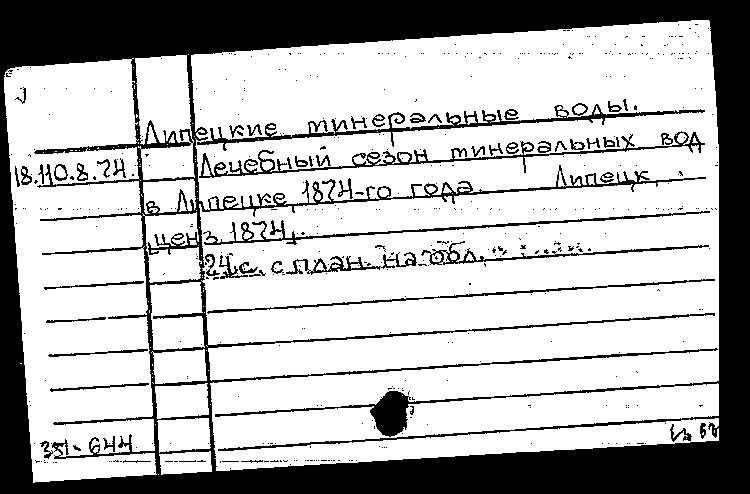 Липецкие минеральные воды.
18.110.8.74. Лечебный сезон минеральных вод
в Липецке 1874-го года. Липецк,
ценз. 1874.
24 с. с план. на обл.
351-644